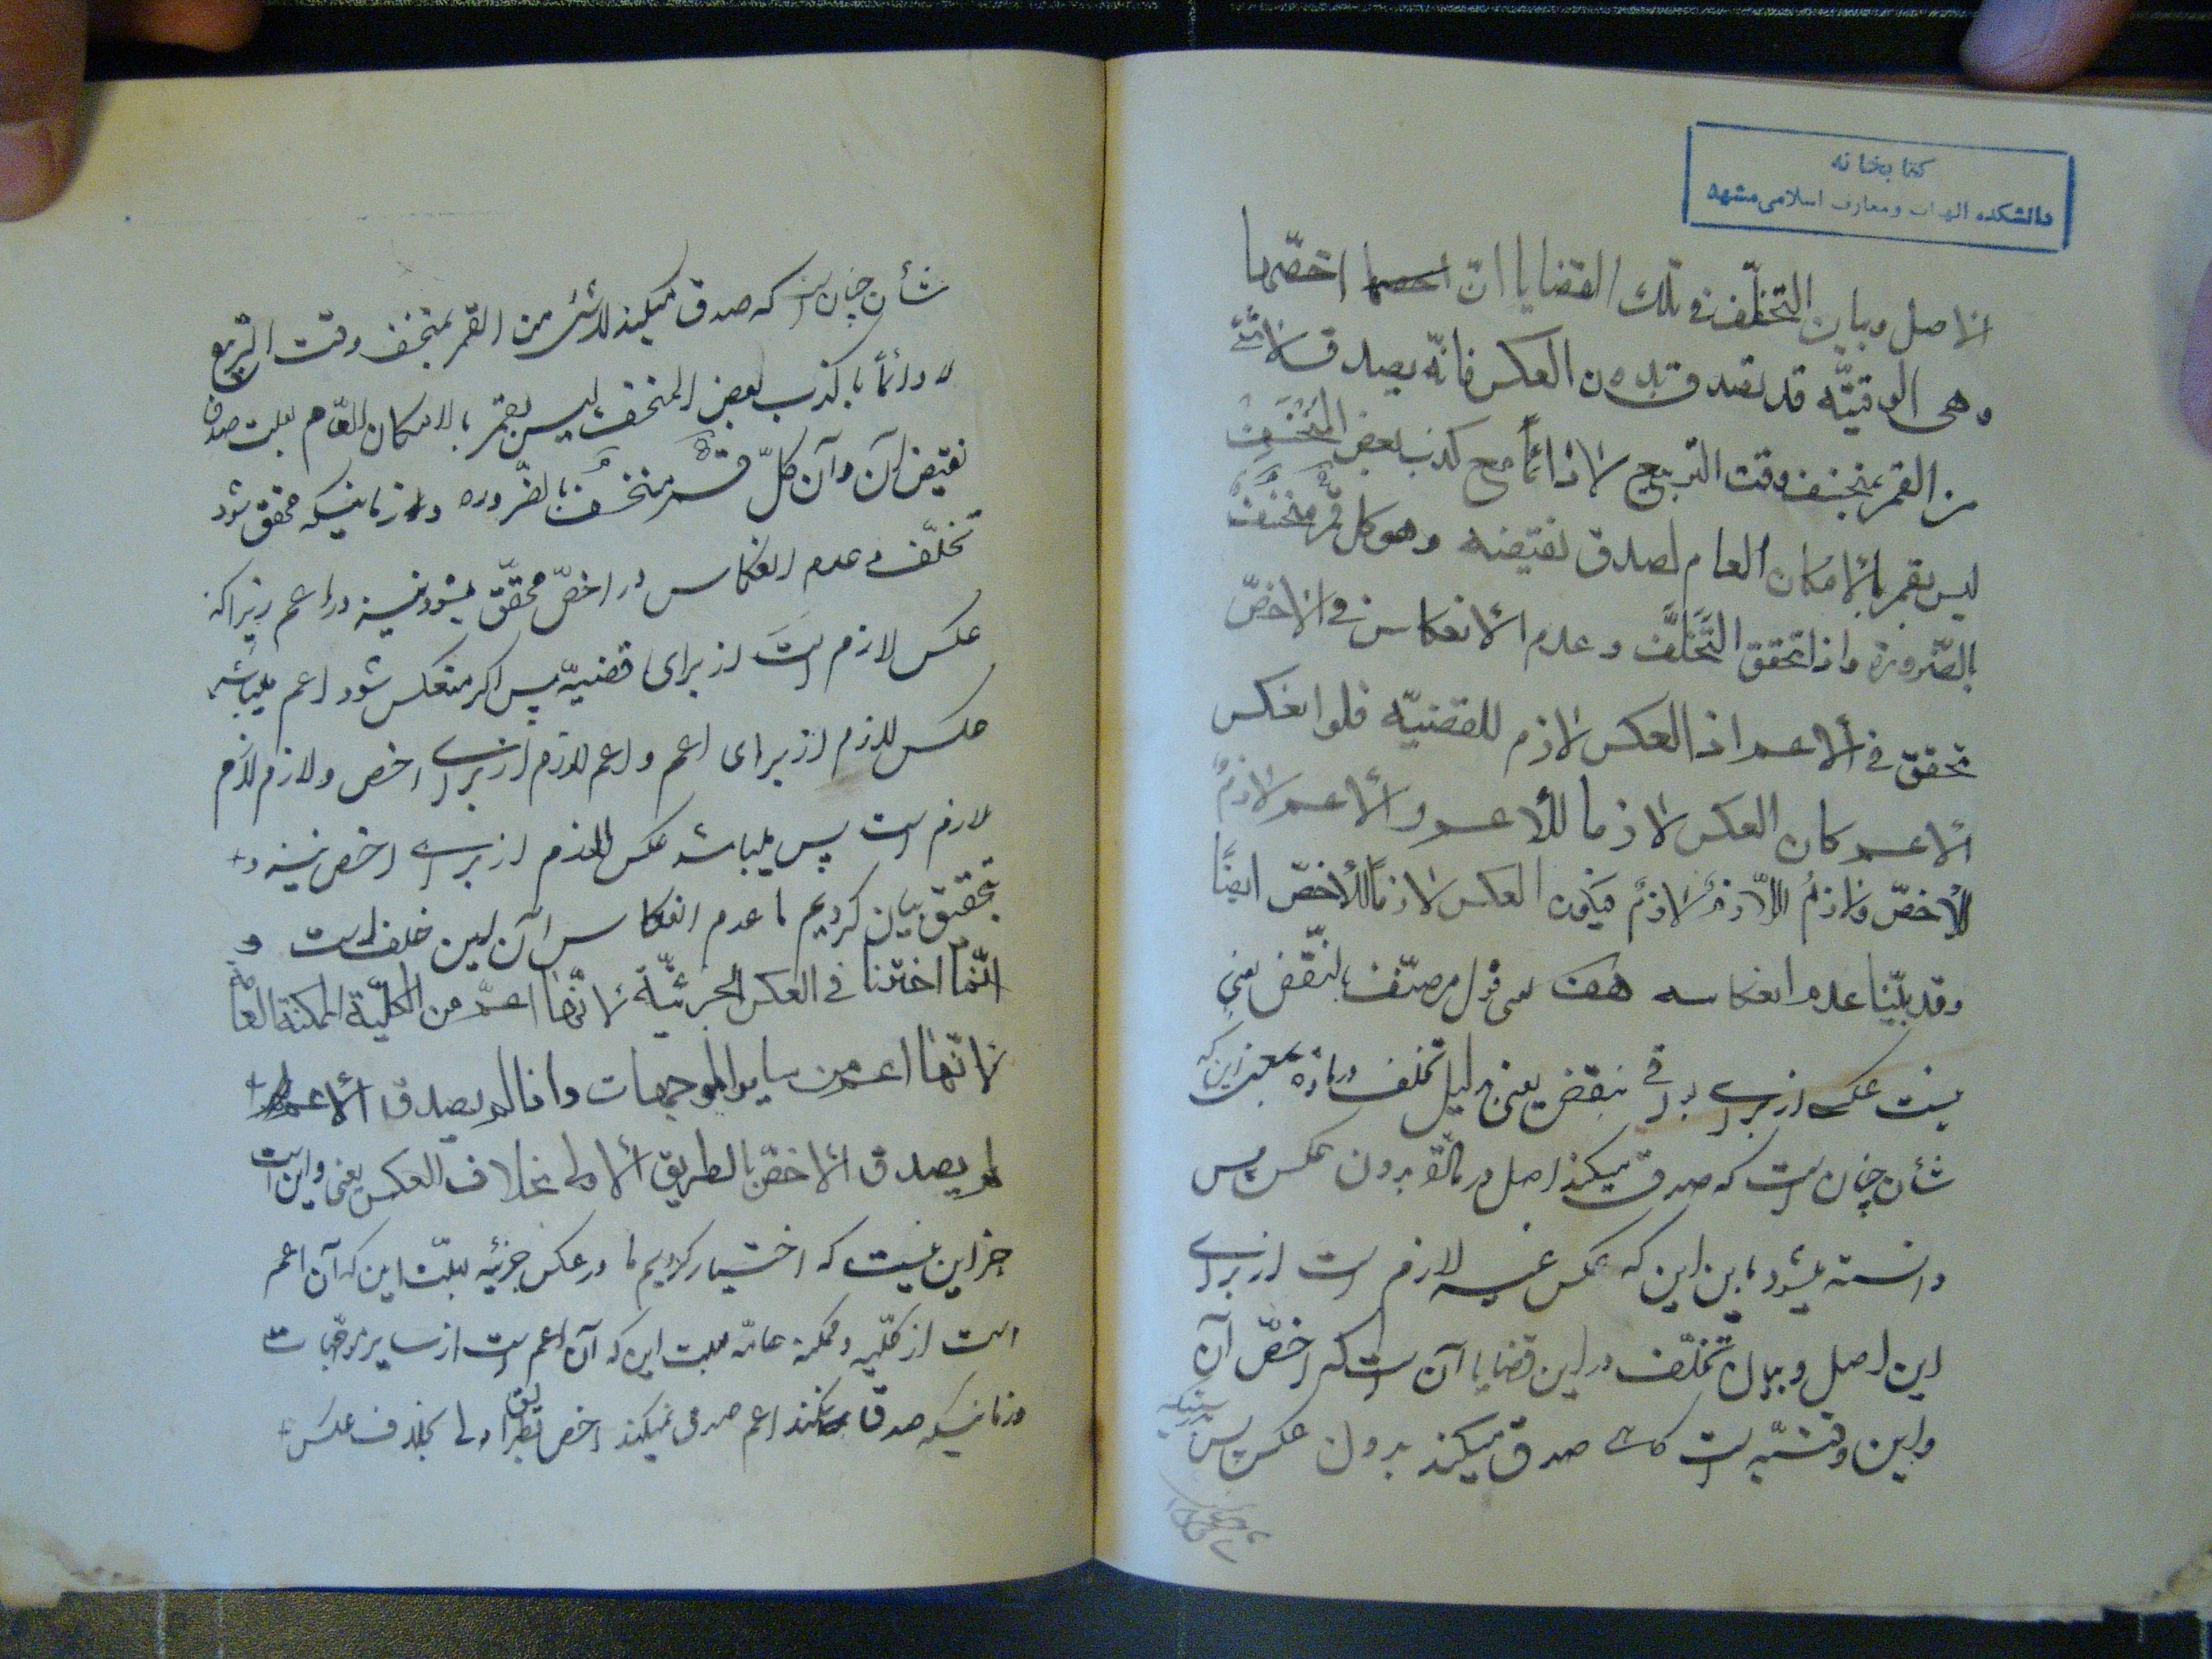 کتابخانه
دانشکده الهیات و معارف اسلامی مشهد
الاصل وبیان التخلّف فی تلک القضایا انّ اخصّها
وهی الوقتیّه قد تصدق بدون العکس فانّه یصدق لاشئ
من القمر بمنخسف وقت التربیع لا دائماً مع کذب بعض المنخسف
لیس بقمر بالامکان العام لصدق نقیضه وهو کل قمر منخسف
بالضّرورة واذا تحقق التّخلّف وعدم الانعکاس فی الاخصّ
تحقق فی الاعم اذ العکس لازم للقضیّه فلو انعکس
الاعم کان العکس لازما للاعم والاعم لازمٌ
للاخصّ ولازمُ اللّازم لازمٌ فیکون العکس لازماً للاخصّ ایضًا
وقد بیّنا عدم انعکاسه هف قول مصنّف بالنّقض یعنی
نیست عکس از برای بواقی بنقض یعنی بدلیل تخلف در ماده بمعنی این که
شأن چنان است که صدق میکند اصل در مادّه بدون عکس پس
دانسته میشود باین این که عکس غیر لازم است از برای
این اصل و بیان تخلّف در این قضایا آن است که اخصّ آن
و این وقتیّه است صدق میکند بدون عکس پس بدرستیکه
شأن چنان است که صدق میکند لاشئ من القمر بمنخسف وقت التربیع
لا دائماً با کذب بعض المنخسف لیس بقمر بالامکان العّام بعلت صدق
نقیض آن و آن کلّ قمر منخسف بالضّروره و زمانیکه محقق شود
تخلّف و عدم انعکاس در اخصّ محقّق میشود نیز در اعم زیرا که
عکس لازم است از برای قضیّه پس اگر منعکس شود اعم میباشد
عکس لازم از برای اعم و اعم لازم از برای اخص و لازم لازم
لازم است پس میباشد عکس لازم از برای اخص نیز و
بتحقیق بیان کردیم ما عدم انعکاس آن این خلف است و
انّما اخترنا فی العکس الجزئیّة لانّها اعمّ من الکلیّة الممکنة العامّة
لانّها اعم من سایر الموجهات واذا لم یصدق الاعم
لم یصدق الاخصّ بالطریق الاولی بخلاف العکس یعنی و این است
جز این نیست که اختیار کردیم ما در عکس جزئیه بعلّت این که آن اعم
است از کلّیه و ممکنه عامّه بعلت این که آن اعم است از سایر موجّهات
و زمانیکه صدق نکند اعم صدق نمیکند اخص بطریق اولی بخلاف عکس